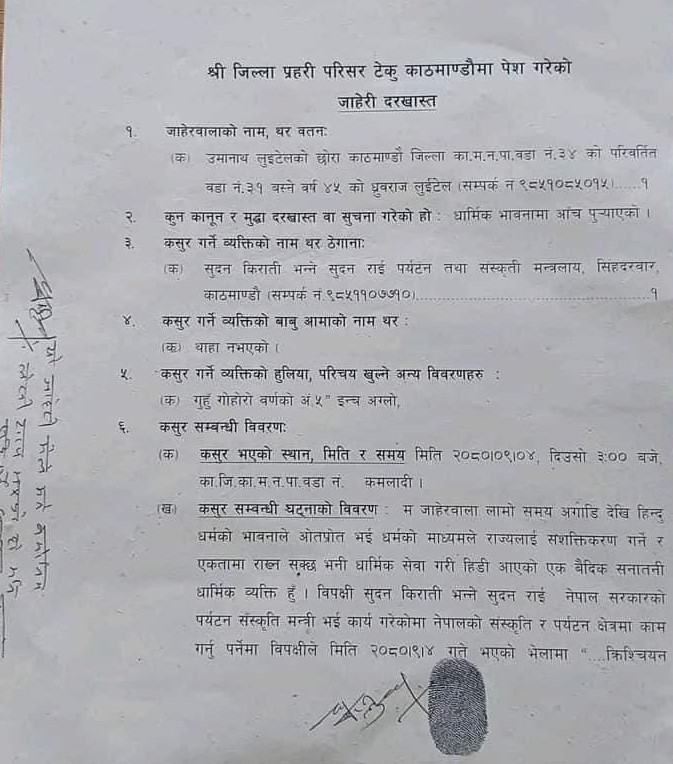 श्री जिल्ला प्रहरी परिसर टेकु काठमाण्डौमा पेश गरेको
जाहेरी दरखास्त
१. जाहेरवालाको नाम, थर वतनः
(क) उमानाथ लुइटेलको छोरा काठमाण्डौ जिल्ला का.म.न.पा.वडा नं.३४ को परिवर्तित
वडा नं.३१ बस्ने वर्ष ४५ को ध्रुवराज लुईटेल (सम्पर्क नं ९८५१०८५०१५)......१
२. कुन कानून र मुद्दा दरखास्त वा सुचना गरेको हो : धार्मिक भावनामा आँच पुऱ्याएको ।
३. कसुर गर्ने व्यक्तिको नाम थर ठेगानाः
(क) सुदन किराती भन्ने सुदन राई पर्यटन तथा संस्कृती मन्त्रलाय, सिंहदरवार,
काठमाण्डौ (सम्पर्क नं.९८५११०७७१०)..................................................१
४. कसुर गर्ने व्यक्तिको बाबु आमाको नाम थर :
(क) थाहा नभएको ।
५. कसुर गर्ने व्यक्तिको हुलिया, परिचय खुल्ने अन्य विवरणहरु :
(क) गुहुँ गोहोरो वर्णको अं.५" इन्च अग्लो,
६. कसुर सम्बन्धी विवरणः
(क) कसुर भएको स्थान, मिति र समय मिति २०८०।०९।०४, दिउसो ३:०० बजे,
का.जि.का.म.न.पा.वडा नं. कमलादी ।
(ख) कसुर सम्बन्धी घट्नाको विवरण : म जाहेरवाला लामो समय अगाडि देखि हिन्दु
धर्मको भावनाले ओतप्रोत भई धर्मको माध्यमले राज्यलाई सशक्तिकरण गर्ने र
एकतामा राख्न सक्छ भनी धार्मिक सेवा गरी हिडी आएको एक बैदिक सनातनी
धार्मिक व्यक्ति हुँ । विपक्षी सुदन किराती भन्ने सुदन राई नेपाल सरकारको
पर्यटन संस्कृति मन्त्री भई कार्य गरेकोमा नेपालको संस्कृति र पर्यटन क्षेत्रमा काम
गर्नु पर्नेमा विपक्षीले मिति २०८०।९।४ गते भएको भेलामा "....क्रिश्चियन